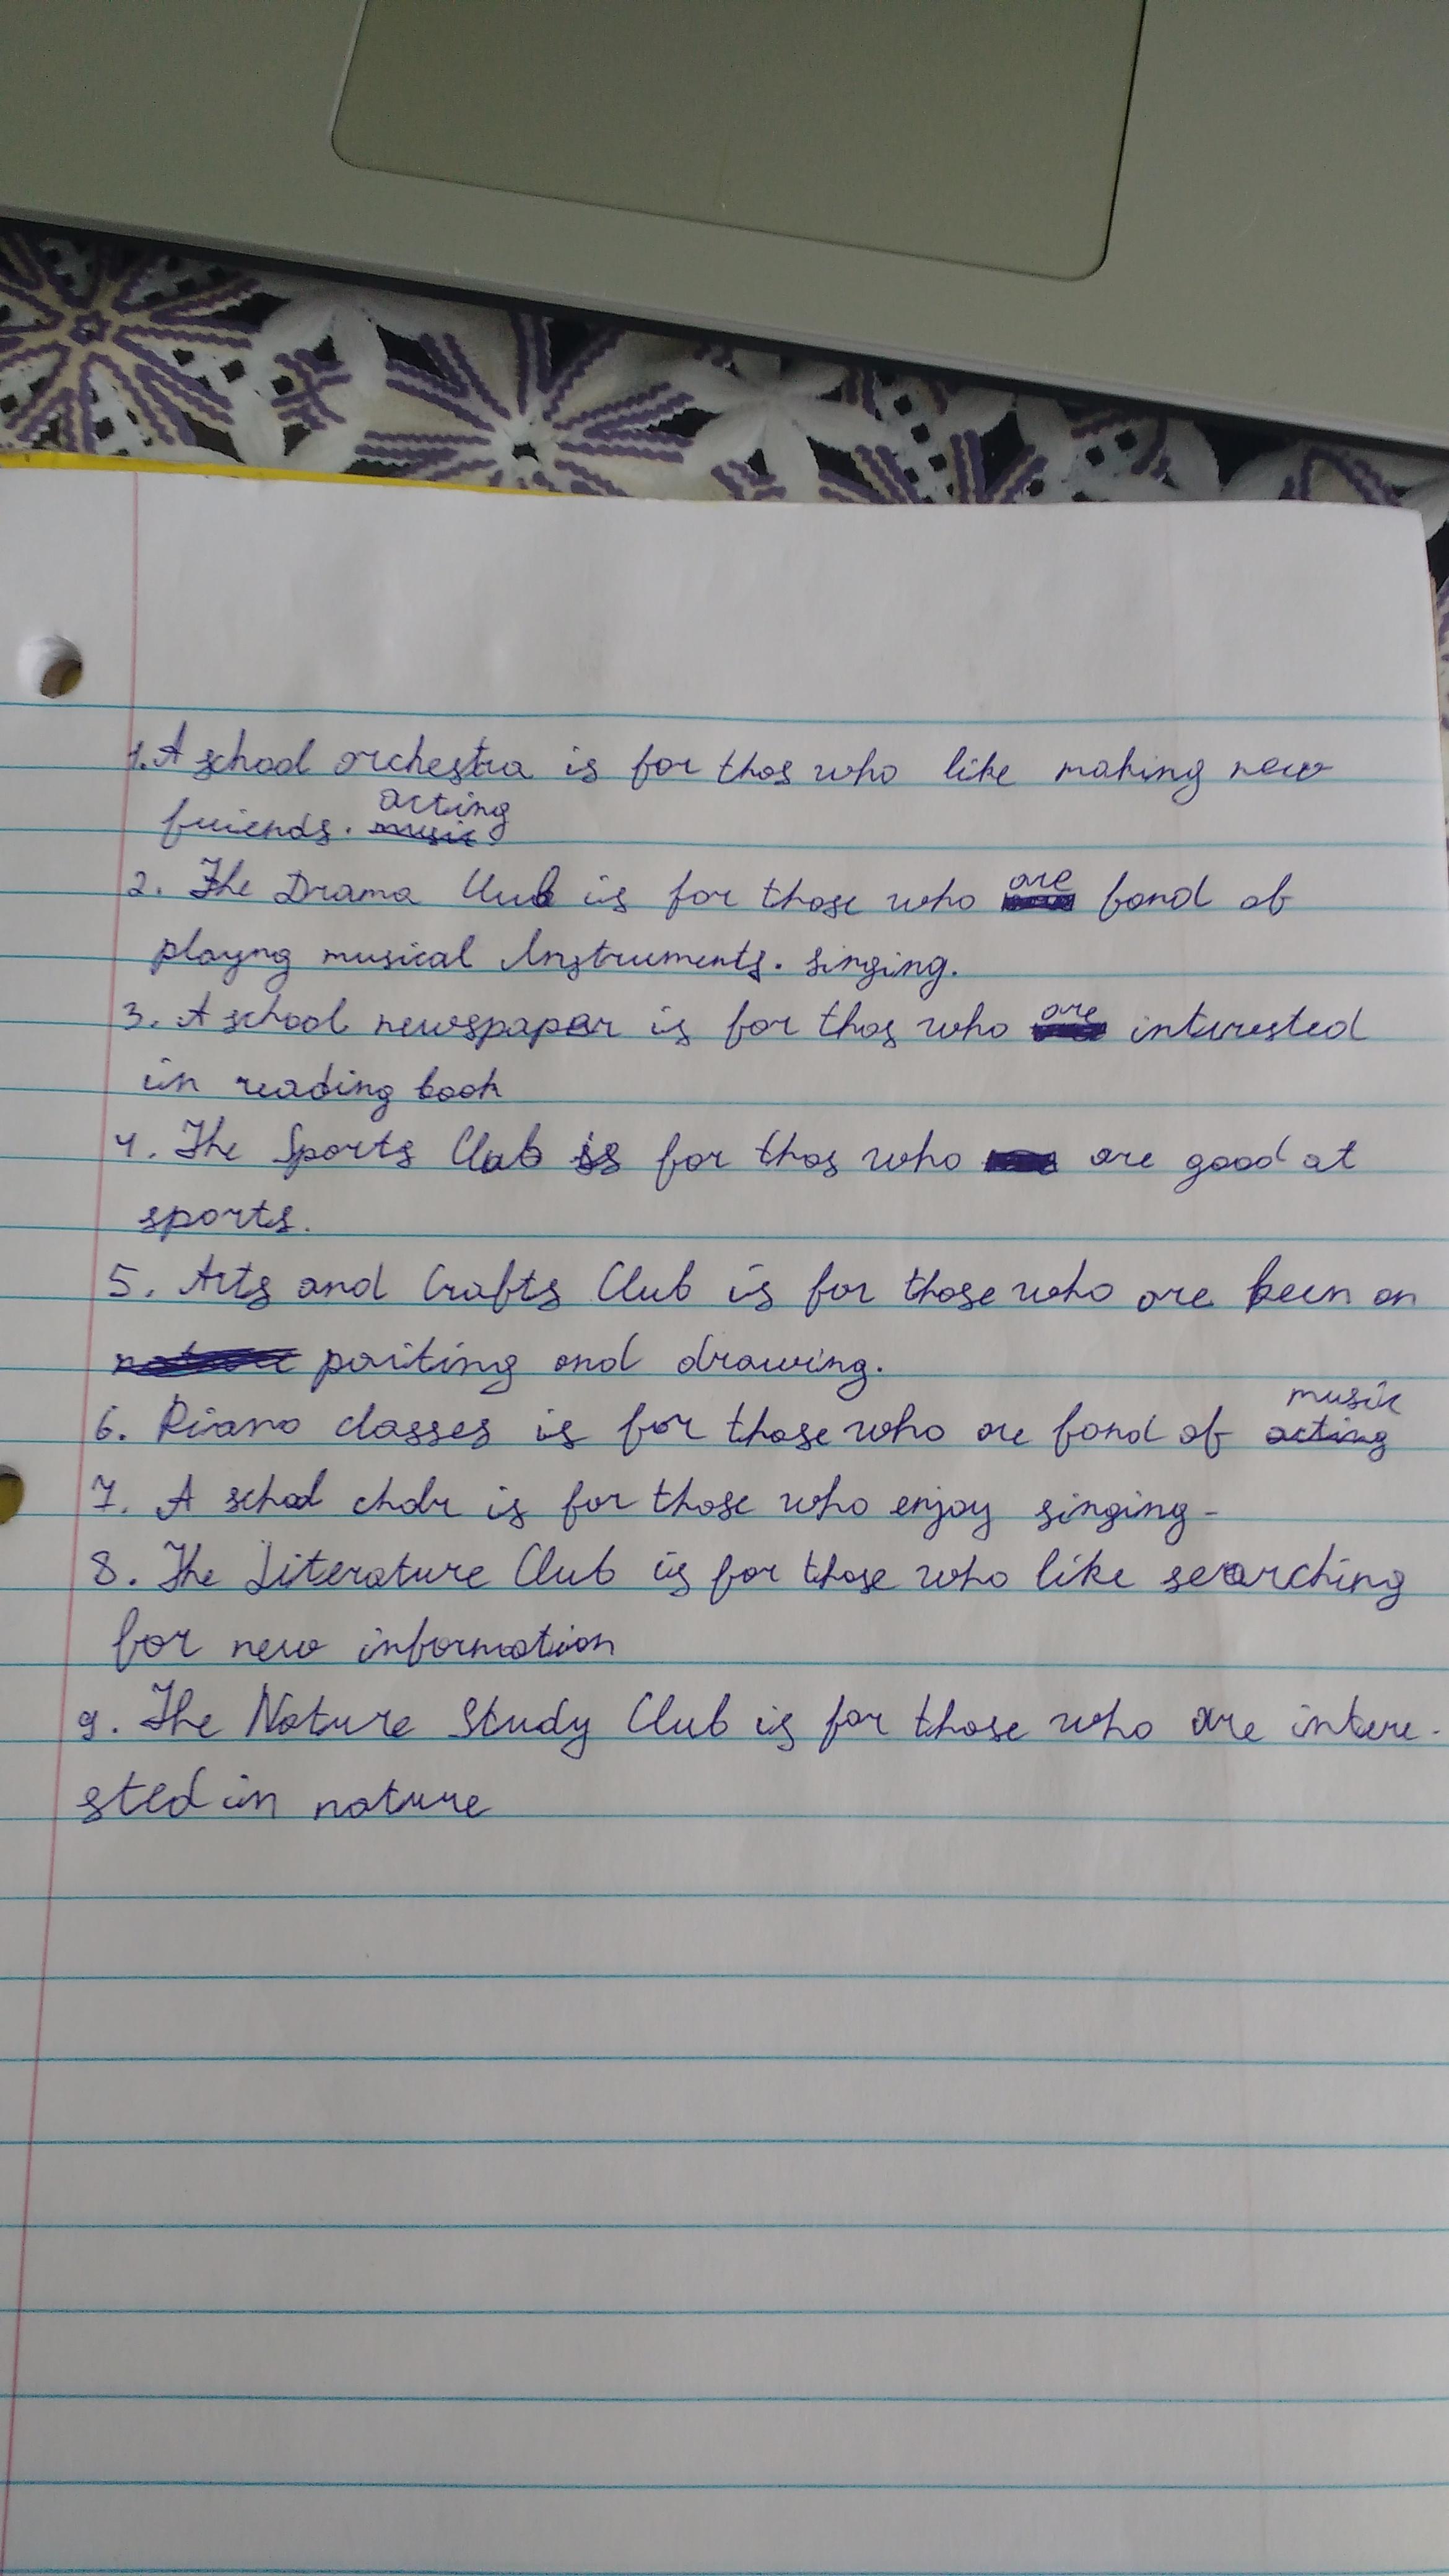 1. A school orchestra is for thos who like making new
friends. acting music
2. The Drama Club is for those who are fond of
playng musical Instruments. singing.
3. A school newspapar is for thos who are interested
in reading book
4. The Sports Club is for thos who are good at
sports.
5. Arts and Crafts Club is for those who are keen on
paiting and drawing.
6. Piano classes is for those who are fond of music acting
7. A school choir is for those who enjoy singing -
8. The Literature Club is for those who like searching
for new information
9. The Nature Study Club is for those who are intere-
sted in nature